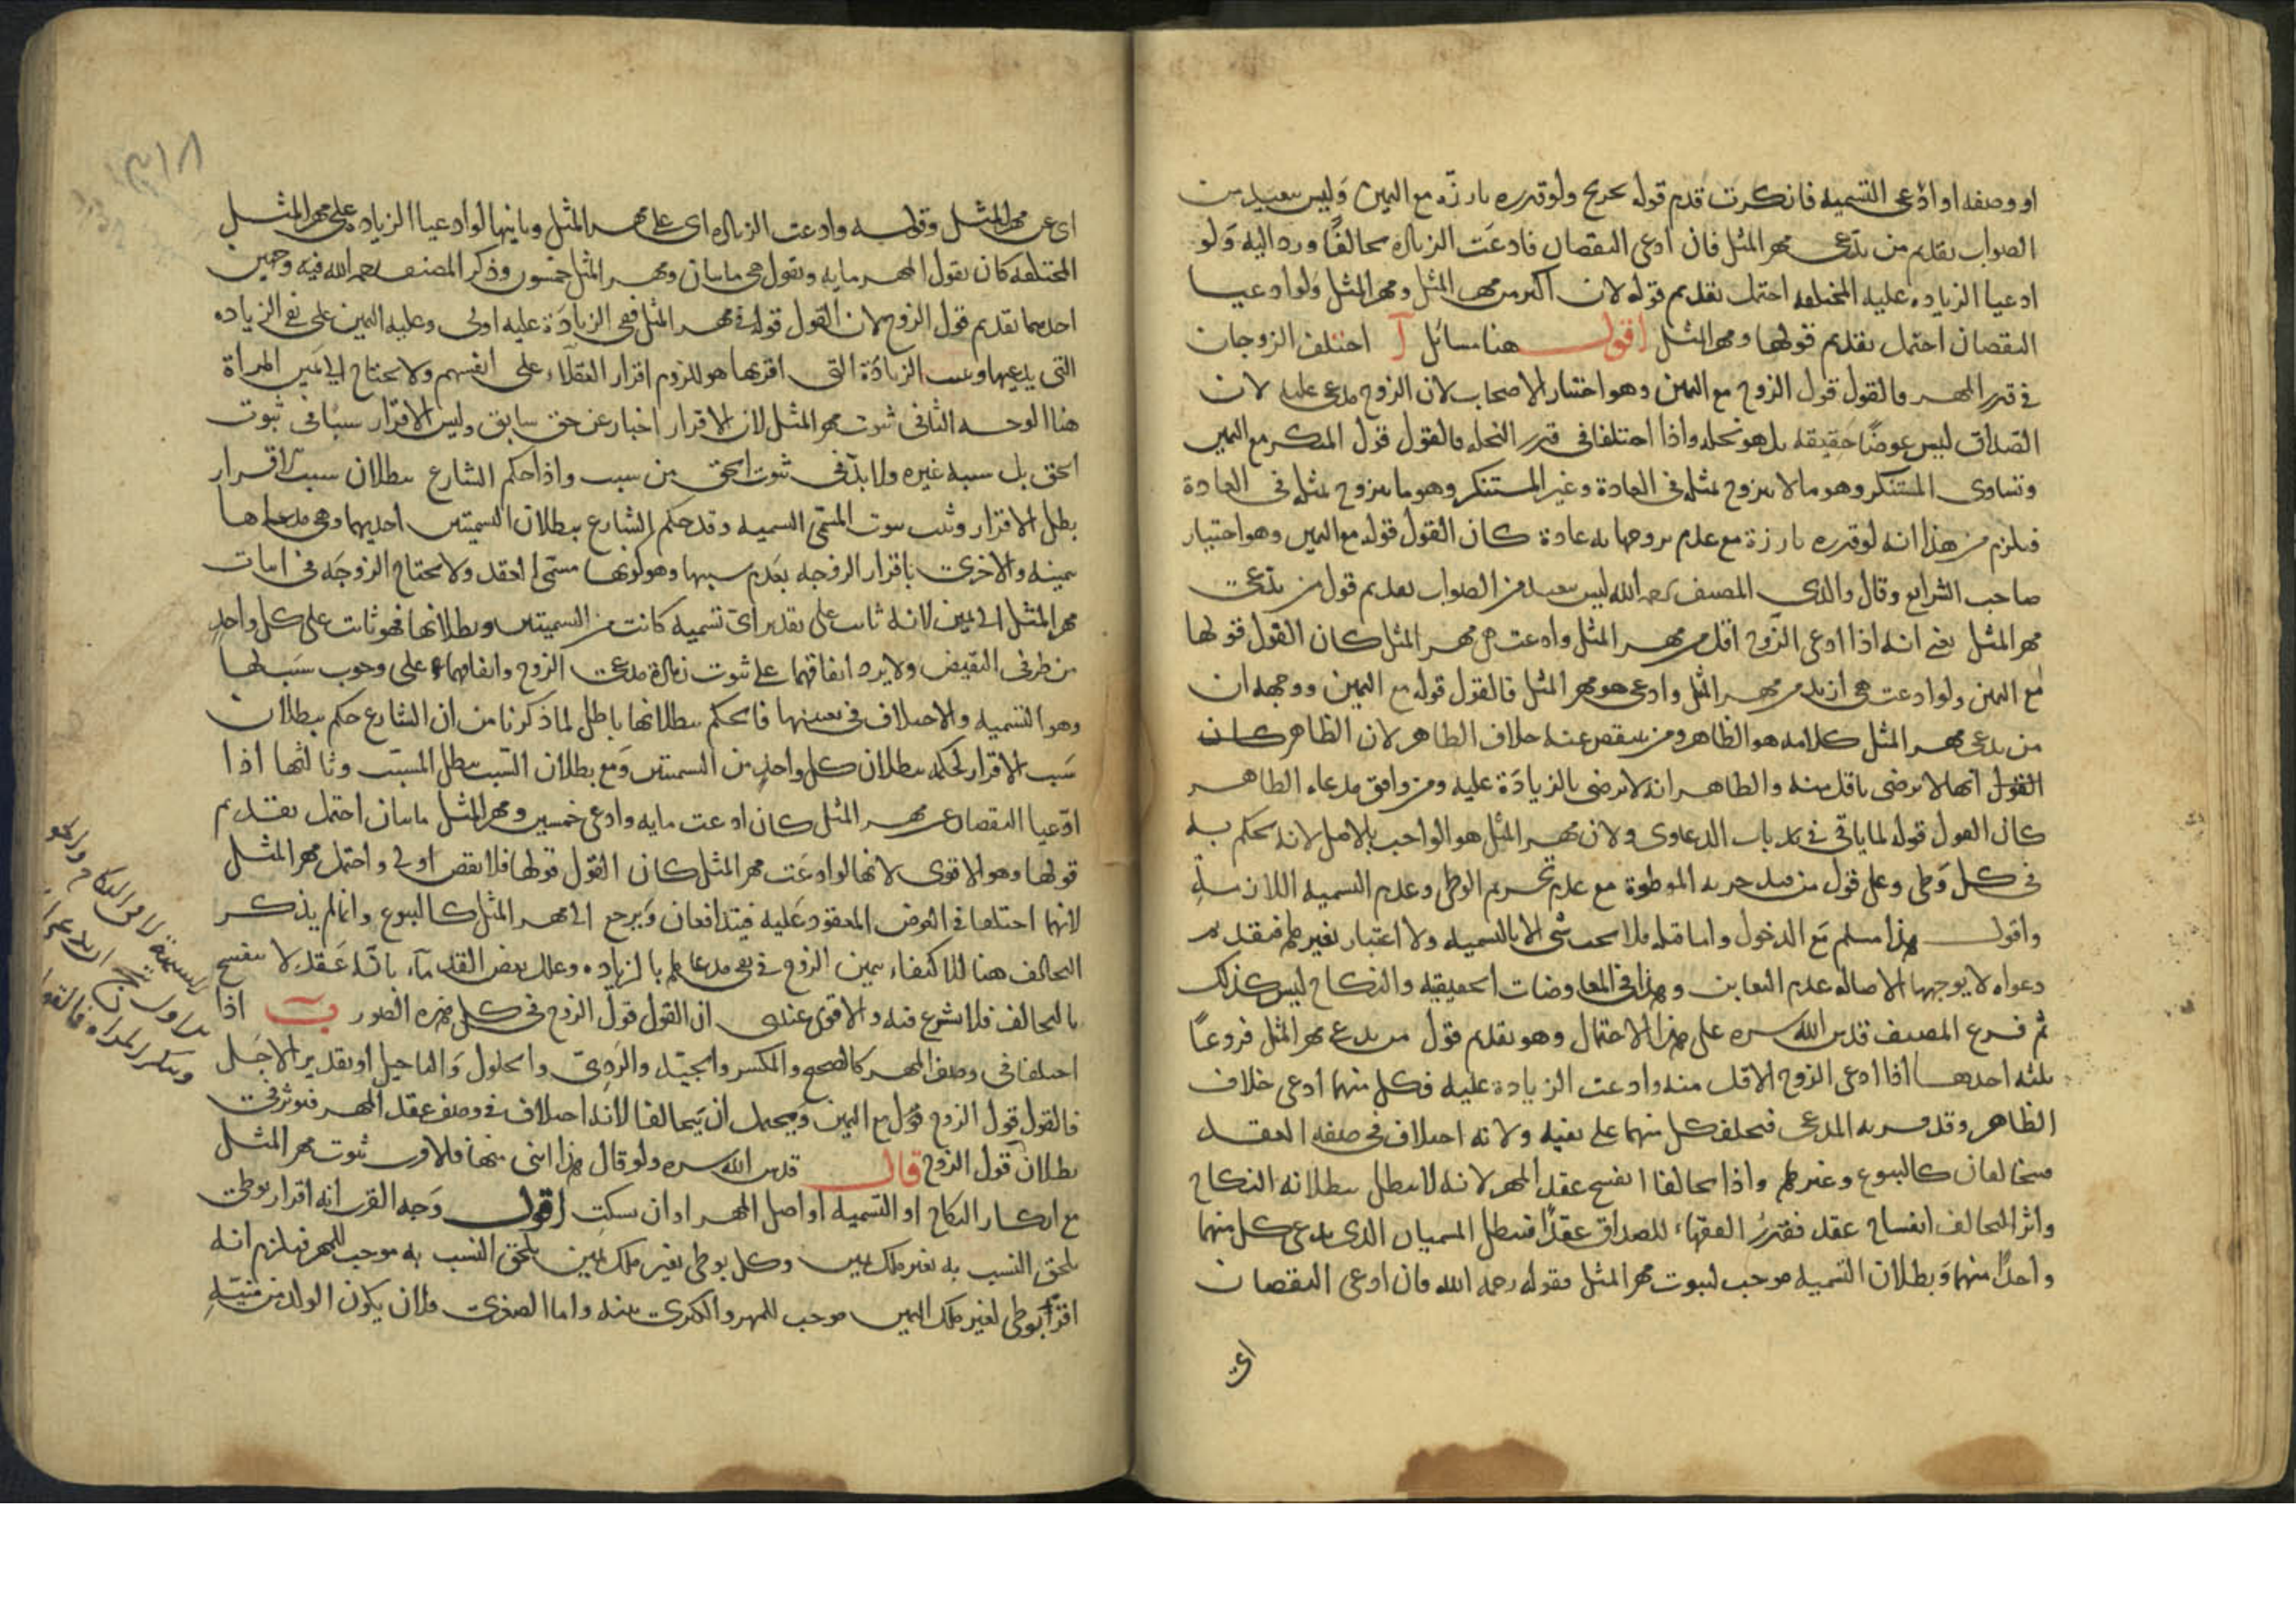 او وصفه او ادعى التسميه فانكرت قدم قوله ولو قدره بارزة مع اليمين وليس ببعيد من
الصواب تقديم من يدعي مهر المثل فان ادعى النقصان فادعت الزيادة تحالفا ورد اليه ولو
ادعيا الزياده عليه المختلفه احتمل تقديم قوله لانه اكثر من مهر المثل ومهر المثل ولو ادعيا
النقصان احتمل تقديم قولها ومهر المثل اقول هنا مسائل آ اختلف الزوجان
في قدر المهر فالقول قول الزوج مع اليمين وهو اختيار الاصحاب لان الزوج مدعى عليه لان
الصداق ليس عوضا حقيقه بل هو نحله واذا اختلفا في قدر النحله فالقول قول المنكر مع اليمين
وتساوى المستنكر وهو ما لا يتزوج بمثله في العادة وغير المستنكر وهو ما يتزوج بمثله في العادة
فيلزم من هذا انه لو قدره بارزة مع عدم تزوجها به عادة كان القول قوله مع اليمين وهو اختيار
صاحب الشرايع وقال والدي المصنف رحمه الله ليس ببعيد من الصواب تقديم قول من يدعي
مهر المثل يعني انه اذا ادعى الزوج اقل من مهر المثل وادعت هي مهر المثل كان القول قولها
مع اليمين ولو ادعت هي ازيد من مهر المثل وادعى هو مهر المثل فالقول قوله مع اليمين ووجهه ان
من يدعي مهر المثل كلامه هو الظاهر ومن ينقص عنه خلاف الظاهر لان الظاهر كان
القول انها لا ترضى باقل منه والظاهر انه لا يرضى بالزيادة عليه ومن وافق مدعاه الظاهر
كان القول قوله لما ياتي في باب الدعاوى ولان مهر المثل هو الواجب بالاصل لانه يحكم به
في كل وطى وعلى قول من قبل حريه الموطوة مع عدم تحريم الوطى وعدم التسميه اللازمة
واقول هذا مسلم مع الدخول واما قبله فلا يجب شى الا بالتسميه ولا اعتبار بغيرها فتقديم
دعواه لا يوجبها الاصاله عدم التغابن وهذا في المعاوضات الحقيقيه والنكاح ليس كذلك
ثم فرع المصنف قدس الله سره على هذا الاحتمال وهو تقديم قول من يدعي مهر المثل فروعا
ثلثه احدها اذا ادعى الزوج الاقل منه وادعت الزيادة عليه فكل منهما ادعى خلاف
الظاهر وقد فسر به المدعى فيحلف كل منهما على نفيه ولانه اختلاف في صفه العقد
فيتحالفان كالبيوع وغيرها واذا تحالفا انفسخ عقد المهر لانه لا يبطل ببطلانه النكاح
واثر التحالف انفساخ عقد فقدر الفقهاء للصداق عقدا فيبطل المسميان الذي يدعي كل منهما
واحدا منهما وبطلان التسميه موجب لثبوت مهر المثل فقوله رحمه الله فان ادعى النقصان
اى
اى عن مهر المثل وقوله وادعت الزيادة اى على مهر المثل وثانيها لو ادعيا الزياده على مهر المثل
المختلفه كان يقول المهر مايه وتقول هي مايتان ومهر المثل خمسون وذكر المصنف رحمه الله فيه وجهين
احدهما تقديم قول الزوج لان القول قوله في مهر المثل ففي الزيادة عليه اولى وعليه اليمين على نفي الزياده
التي يدعيها وتثبت الزيادة التي اقر بها هو للزوم اقرار العقلاء على انفسهم ولا يحتاج الى يمين المراة
هنا الوجه الثاني ثبوت مهر المثل لان الاقرار اخبار عن حق سابق وليس الاقرار سببا في ثبوت
الحق بل سببه غيره ولا بد في ثبوت الحق من سبب واذا حكم الشارع ببطلان سبب الاقرار
بطل الاقرار وثبوت المسمى التسميه وقد حكم الشارع ببطلان التسميتين احديهما وهي مدعاها
بيمينه والاخرى باقرار الزوجه بعدم سببها وهو كونها مسمى العقد ولا تحتاج الزوجه في اثبات
مهر المثل الى يمين لانه ثابت على تقدير اى تسميه كانت من التسميتين وبطلانها فهو ثابت على كل واحد
من طرفي النقيض ولا يرد اتفاقهما على ثبوت زيادة مدعى الزوج واتفاقهما على وجوب سببها
وهو التسميه والاختلاف في تعيينها فالحكم ببطلانها باطل لما ذكرنا من ان الشارع حكم ببطلان
سبب الاقرار لحكمه ببطلان كل واحد من التسميتين ومع بطلان السبب يبطل المسبب وثالثها اذا
ادعيا النقصان عن مهر المثل كان ادعت مايه وادعى خمسين ومهر المثل مايتان احتمل تقديم
قولها وهو الاقوى لانها لو ادعت مهر المثل كان القول قولها فلانقص اولى واحتمل مهر المثل
لانهما اختلفا في العوض المعقود عليه فيتدافعان ويرجع الى مهر المثل كالبيوع وانما لم يذكر
التحالف هنا للاكتفاء بيمين الزوج في نفي مدعاها بالزياده وعلل بعض القدماء بانه عقد لا ينفسخ
بالتحالف فلا يشرع فيه والاقوى عندى ان القول قول الزوج في كل هذه الصور ب اذا
اختلفا في وصف المهر كالصحيح والمكسر والجيد والردي والحلول والتاجيل او تقدير الاجل
فالقول قول الزوج مع اليمين ويحتمل ان يتحالفا لانه اختلاف في وصف عقد المهر فيوثر في
بطلان قول الزوج قال قدس الله سره ولو قال هذا ابنى منها فالاقرب ثبوت مهر المثل
مع انكار النكاح او التسميه او اصل المهر او ان سكت اقول وجه القرب انه اقرار بوطى
يلحق النسب به بغير ملك يمين وكل وطى بغير ملك يمين يلحق النسب به موجب للمهر فيلزم انه
اقر بوطى لغير ملك اليمين موجب للمهر والكبرى بينه واما الصغرى فلان يكون الولد من منيته